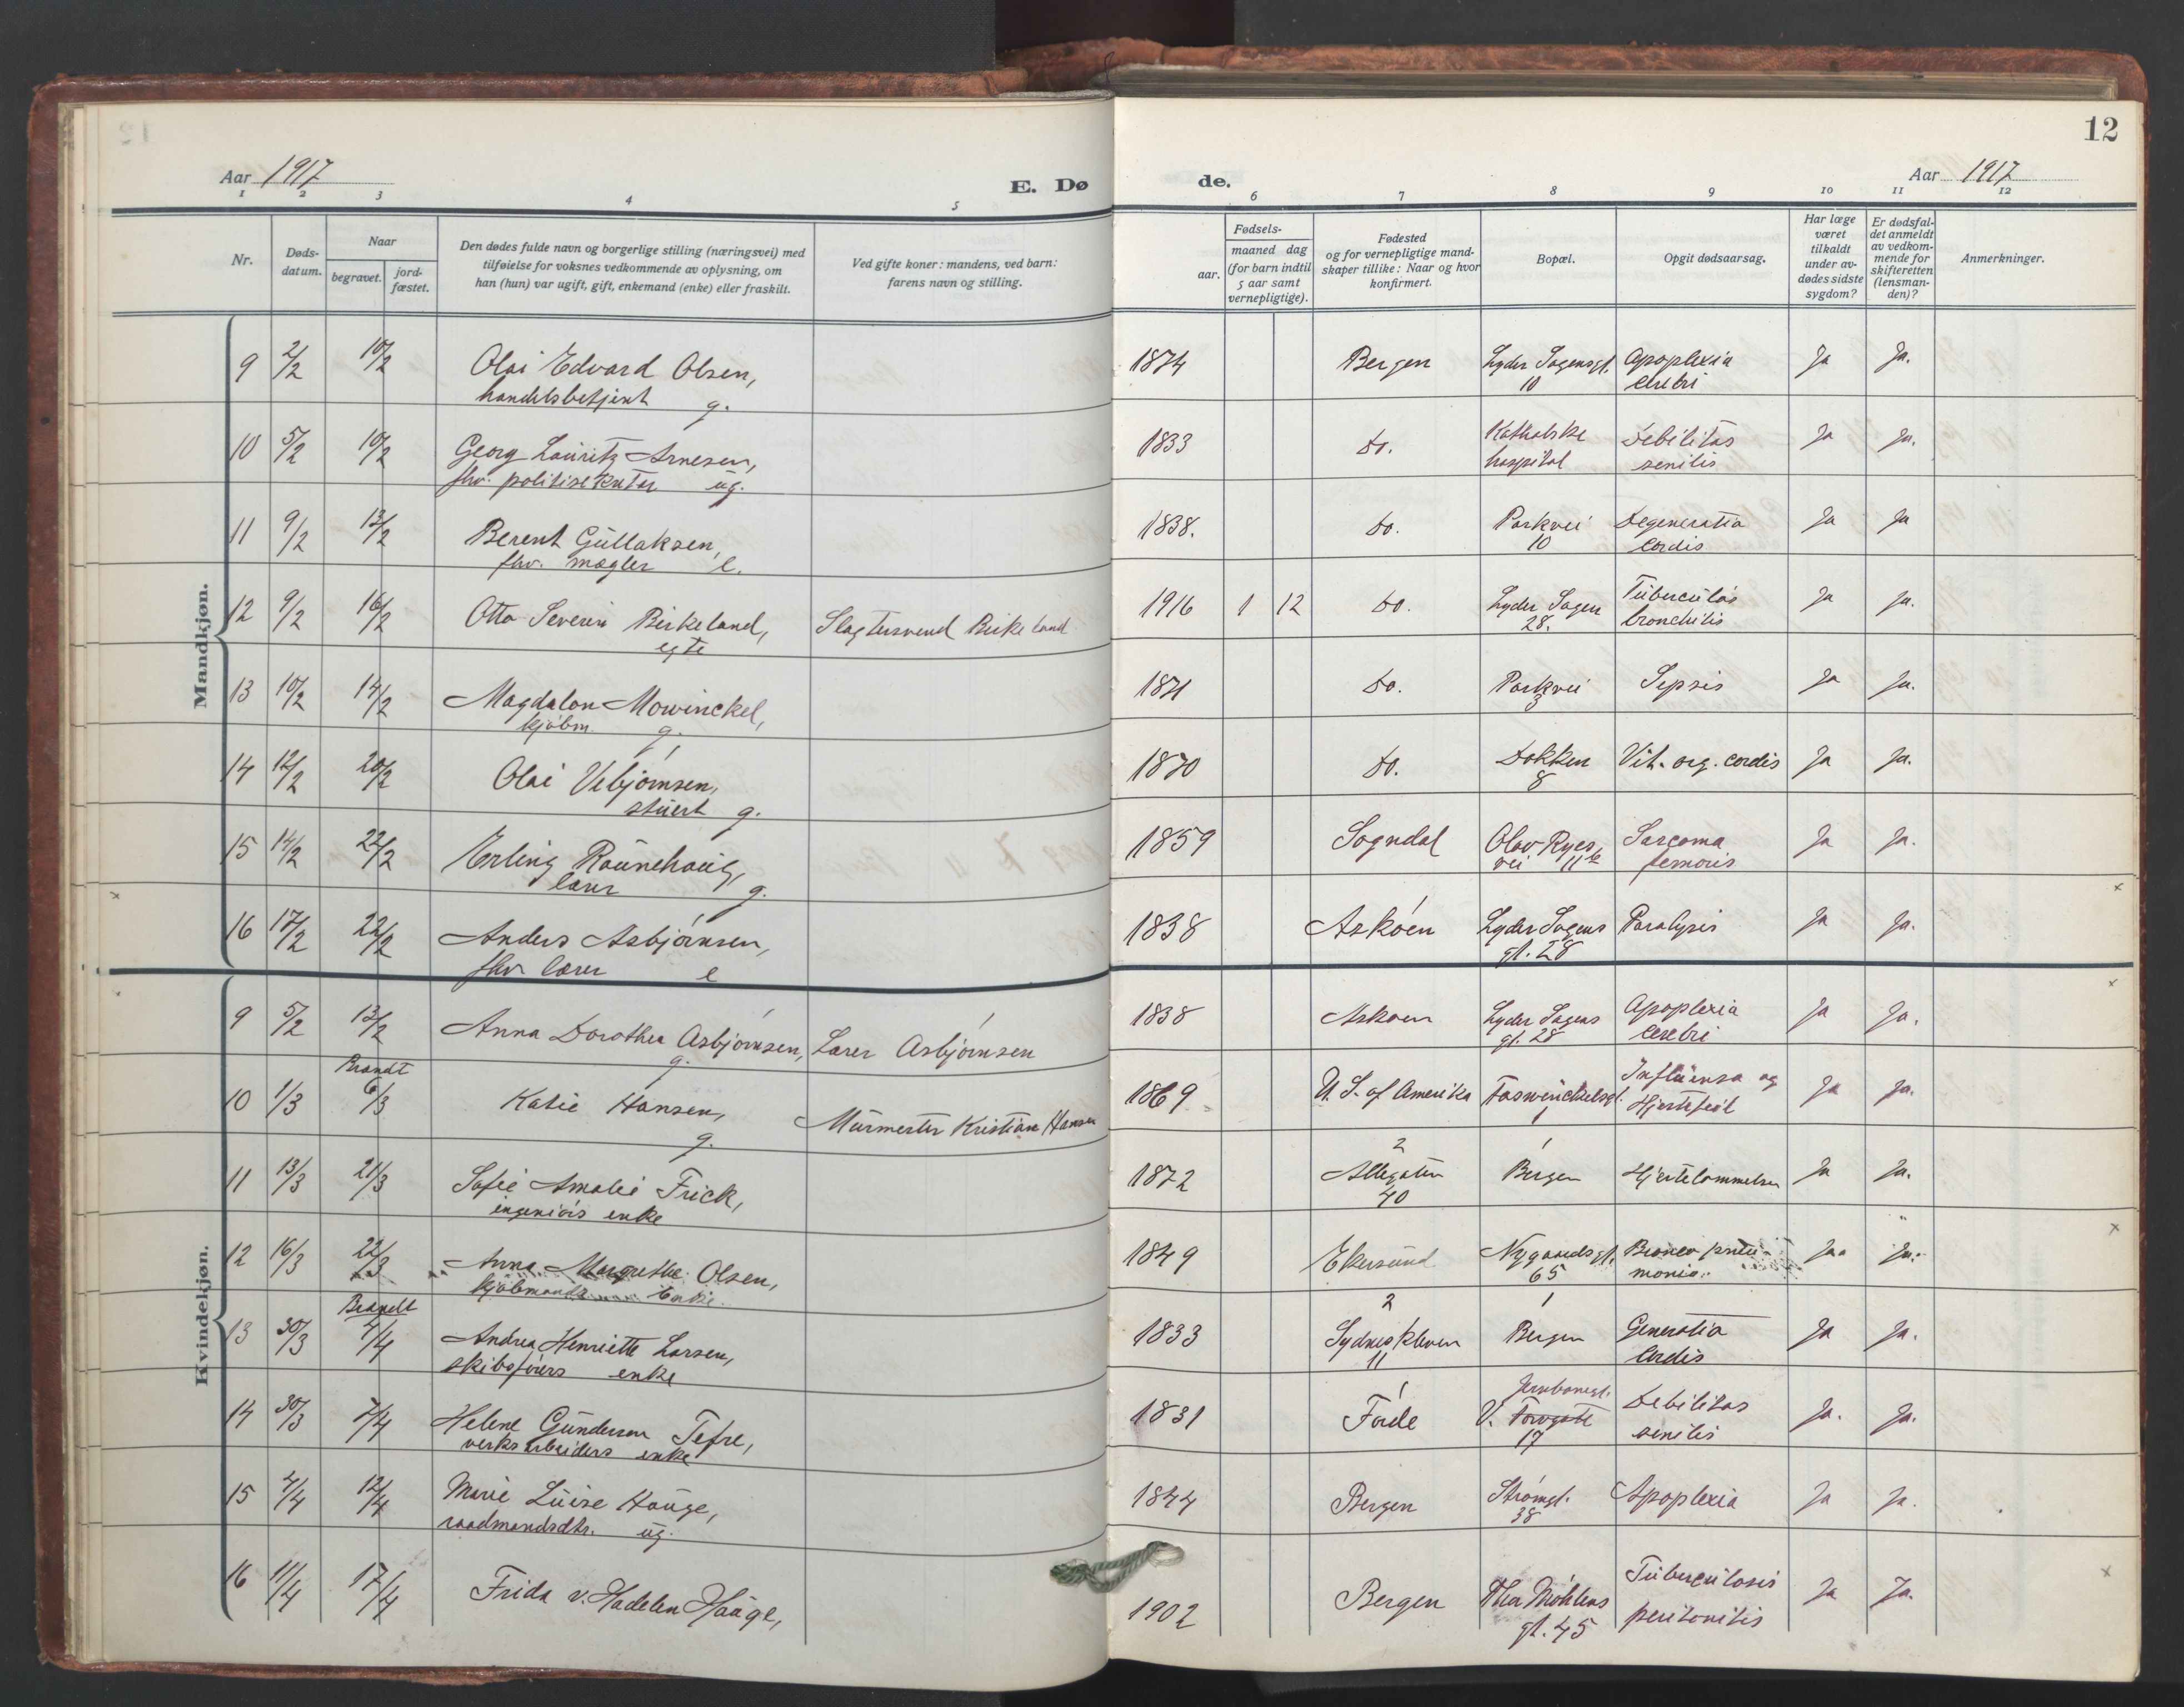 12
Aar 1917
E. Dø
de.
Aar 1917
1 2 3 4 5 6 7 8 9 10 11 12
Nr.
Døds-
datum.
Naar
begravet.
jord-
fæstet.
Den dødes fulde navn og borgerlige stilling (næringsvei) med
tilføielse for voksnes vedkommende av oplysning, om
han (hun) var ugift, gift, enkemand (enke) eller fraskilt.
Ved gifte koner: mandens, ved barn:
farens navn og stilling.
Fødsels-
aar.
maaned dag
(for barn indtil
5 aar samt
vernepligtige).
Fødested
og for vernepligtige mand-
skaper tillike: Naar og hvor
konfirmert.
Bopæl.
Opgit dødsaarsag.
Har læge
været
tilkaldt
under av-
dødes sidste
sygdom?
Er dødsfal-
det anmeldt
av vedkom-
mende for
skifteretten
(lensman-
den)?
Anmerkninger.
Mandkjøn.
9 2/2 10/2 Olai Edvard Olsen, 1874 Bergen Lyder Sagensgt. Apoplexia Ja Ja.
handelsbetjent g. 10 cerebri
10 5/2 10/2 Georg Lauritz Arnesen, 1833 do. Katholske Debilitas Ja Ja.
fhv. politisekretær ug. hospital senilis
11 9/2 13/2 Berent Gullaksen, 1838. do. Parkvei Degeneratio Ja Ja
fhv. mægler e. 10 Cordis
12 9/2 16/2 Otto Severin Birkeland, Slagtersvend Birkeland 1916 1 12 do. Lyder Sagen Tuberculøs Ja Ja.
egte 28. bronchitis
13 10/2 14/2 Magdalon Mowinckel, 1871 do. Parkvei Sepsis Ja Ja.
kjøbm. g. 3
14 12/2 20/2 Olai Vebjørnsen, 1870 do. Dokken Vit. org. cordis Ja Ja.
stuert g. 8
15 14/2 22/2 Erling Raunehaug, 1859 Sogndal Olav Ryes Sarcoma Ja Ja.
lærer g. vei 11b femoris
16 17/2 22/2 Anders Asbjørnsen, 1838 Askøen Lyder Sagens Paralysis Ja Ja.
fhv lærer e gt. 28
Kvindekjøn.
9 5/2 13/2 Anna Dorothea Asbjørnsen, Lærer Asbjørnsen 1838 Askøen Lyder Sagens Apoplexia Ja Ja.
g. gt. 28 Cerebri
Brandt
10 1/3 6/3 Katie Hansen, Murmester Kristian Hansen 1869 U. S. of Amerika Foswinckelsgt. Influensa og Ja Ja.
g. 1 Hjertefeil
2 1
11 13/3 21/3 Sofie Amalie Frick, 1872 Allegaten Bergen Hjertelammelse Ja Ja.
ingeniørs enke 40
12 16/3 22/3 Anna Margrethe Olsen, 1849 Ekersund Nygaardsgt. Bronco pneu- Ja. Ja.
kjøbmands Enke. 65 monia.
Brandt 2 1
13 30/3 4/4 Andrea Henriette Larsen, 1833 Sydneskleven Bergen Generatio Ja Ja.
skibsførers enke 11 Cordis
Jernbanegt.
14 30/3 7/4 Helene Gundersen Tefre, 1831 Førde V. Torvgate Debilitas Ja. Ja.
verksarbeiders enke 17 senilis
15 4/4 12/4 Marie Luise Hauge, 1844 Bergen Strømgt. Apoplexia Ja Ja.
raadmandsdtr. ug. 38
16 11/4 17/4 Frida v. Hadelen Hauge, 1902 Bergen Thor Møhlens Tuberculosis Ja Ja.
gt. 45 peritonitis